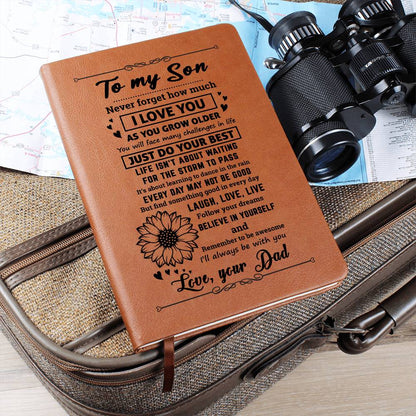 To my Son
Never forget how much
I LOVE YOU
AS YOU GROW OLDER
You will face many challenges in life
JUST DO YOUR BEST
LIFE ISN'T ABOUT WAITING
FOR THE STORM TO PASS
It's about learning to dance in the rain
EVERY DAY MAY NOT BE GOOD
But find something good in every day
LAUGH, LOVE, LIVE
Follow your dreams
BELIEVE IN YOURSELF
and
Remember to be awesome
I'll always be with you
Love, your Dad